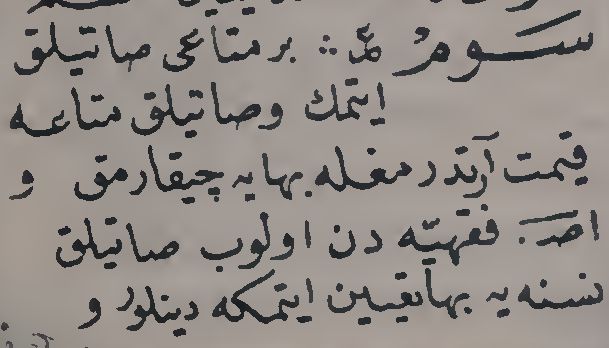 سَومٌ مَّ :: بر متاعی صاتیلق
ایتمك وصاتیلق متاعه
قیمت آرتدرمغله بهایه چیقارمق و
اصـ. فقهیّه دن اولوب صاتیلق
نسنه یه بها تعیین ایتمكه دینلور و